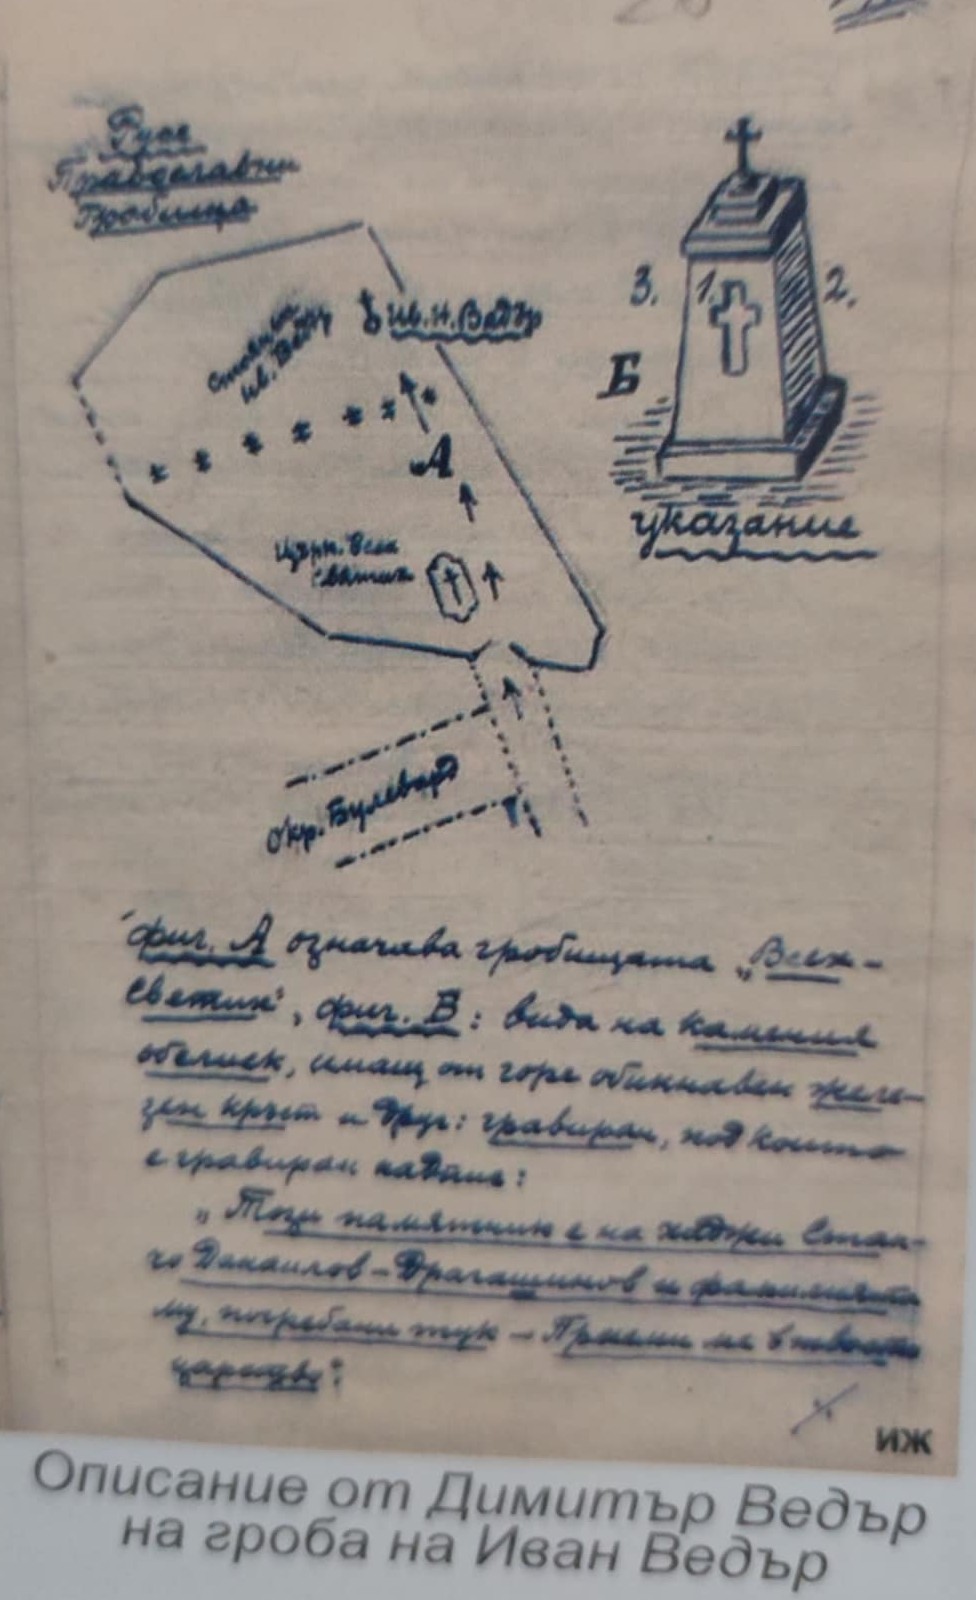 Русе
Православни
Гробища
Ив. Н. Ведър
Ив. Ведър
А
Църк. Всех
Святих
Окр. Булевард
3. 1. 2.
Б
указание
фиг. А означава гробищата „Всех-
Светих", фиг. В: вида на камения
обелиск, имащ от горе обикнавен желе-
зен кръст и друг: гравиран, под който
е гравиран надпис:
„Този памятник е на хаджи Стан-
чо Данаилов – Драгашинов и фамилията
му, погребани тук – Приеми ме в твоето
царство":
ИЖ
Описание от Димитър Ведър
на гроба на Иван Ведър